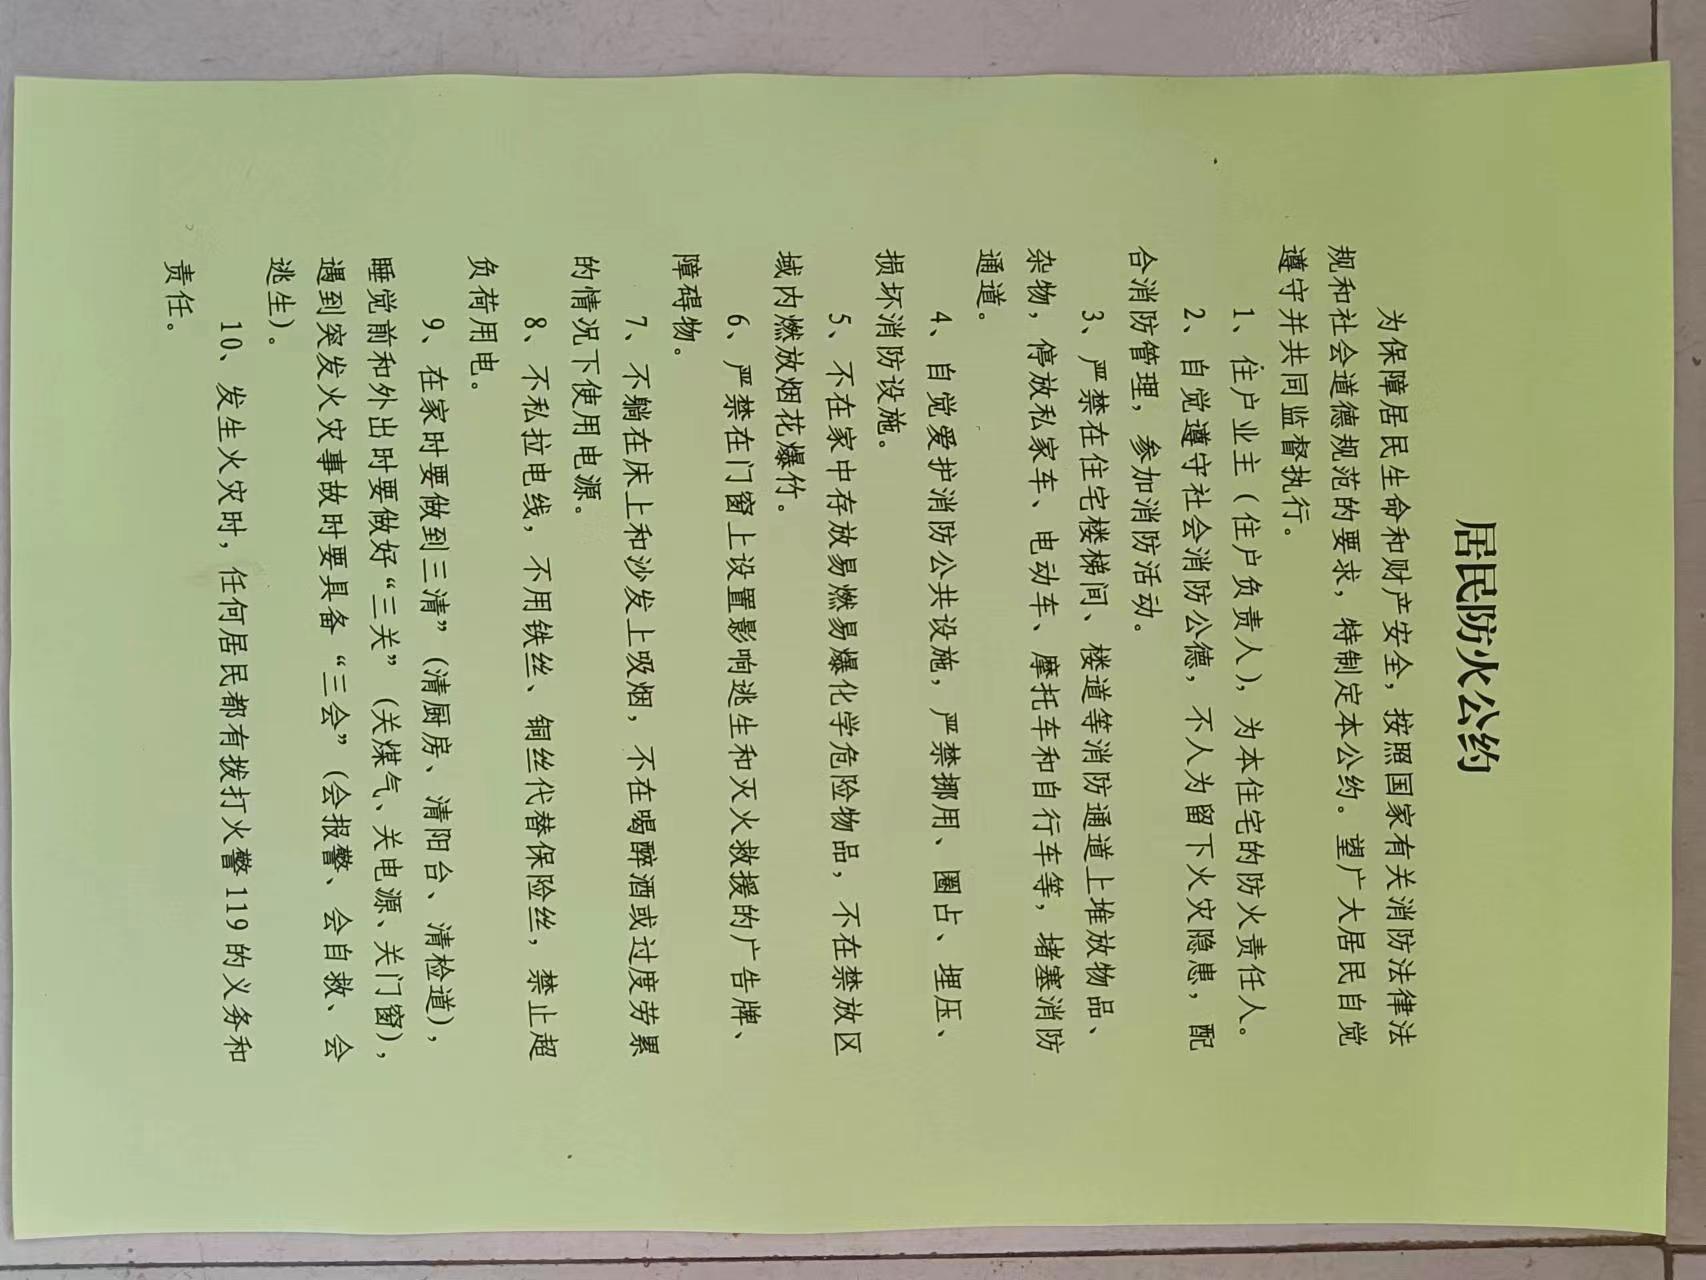 居民防火公约
为保障居民生命和财产安全，按照国家有关消防法律法
规和社会道德规范的要求，特制定本公约。望广大居民自觉
遵守并共同监督执行。
1、住户业主（住户负责人），为本住宅的防火责任人。
2、自觉遵守社会消防公德，不人为留下火灾隐患，配
合消防管理，参加消防活动。
3、严禁在住宅楼梯间、楼道等消防通道上堆放物品、
杂物，停放私家车、电动车、摩托车和自行车等，堵塞消防
通道。
4、自觉爱护消防公共设施，严禁挪用、圈占、埋压、
损坏消防设施。
5、不在家中存放易燃易爆化学危险物品，不在禁放区
域内燃放烟花爆竹。
6、严禁在门窗上设置影响逃生和灭火救援的广告牌、
障碍物。
7、不躺在床上和沙发上吸烟，不在喝醉酒或过度劳累
的情况下使用电源。
8、不私拉电线，不用铁丝、铜丝代替保险丝，禁止超
负荷用电。
9、在家时要做到三清”（清厨房、清阳台、清检道），
睡觉前和外出时要做好“三关”（关煤气、关电源、关门窗），
遇到突发火灾事故时要具备“三会”（会报警、会自救、会
逃生）。
10、发生火灾时，任何居民都有拨打火警119的义务和
责任。